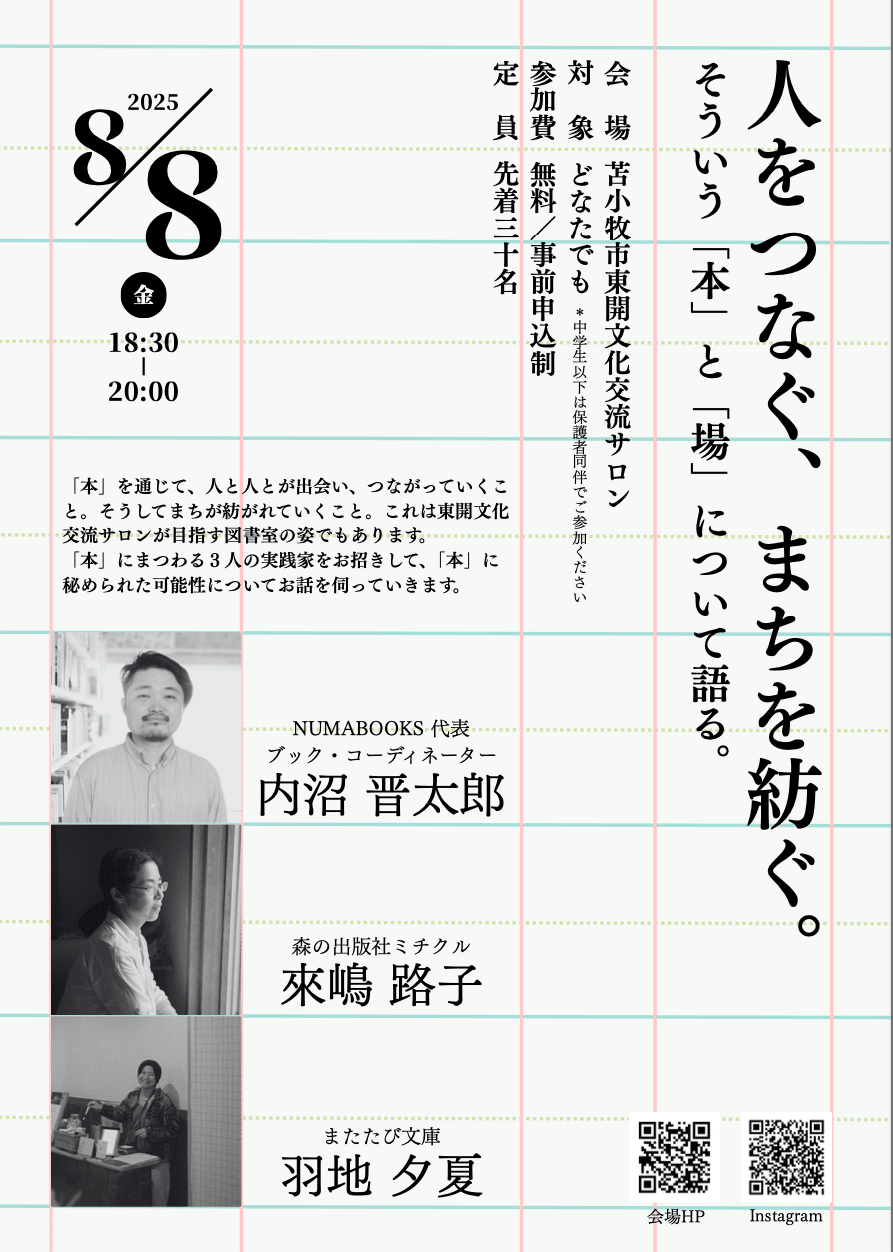 人をつなぐ、まちを紡ぐ。
そういう「本」と「場」について語る。
会場 苫小牧市東開文化交流サロン
対象 どなたでも *中学生以下は保護者同伴でご参加ください
参加費 無料／事前申込制
定員 先着三十名
2025
8/8
金
18:30
|
20:00
「本」を通じて、人と人とが出会い、つながっていくこ
と。そうしてまちが紡がれていくこと。これは東開文化
交流サロンが目指す図書室の姿でもあります。
「本」にまつわる３人の実践家をお招きして、「本」に
秘められた可能性についてお話を伺っていきます。
NUMABOOKS 代表
ブック・コーディネーター
内沼 晋太郎
森の出版社ミチクル
來嶋 路子
またたび文庫
羽地 夕夏
会場HP
Instagram